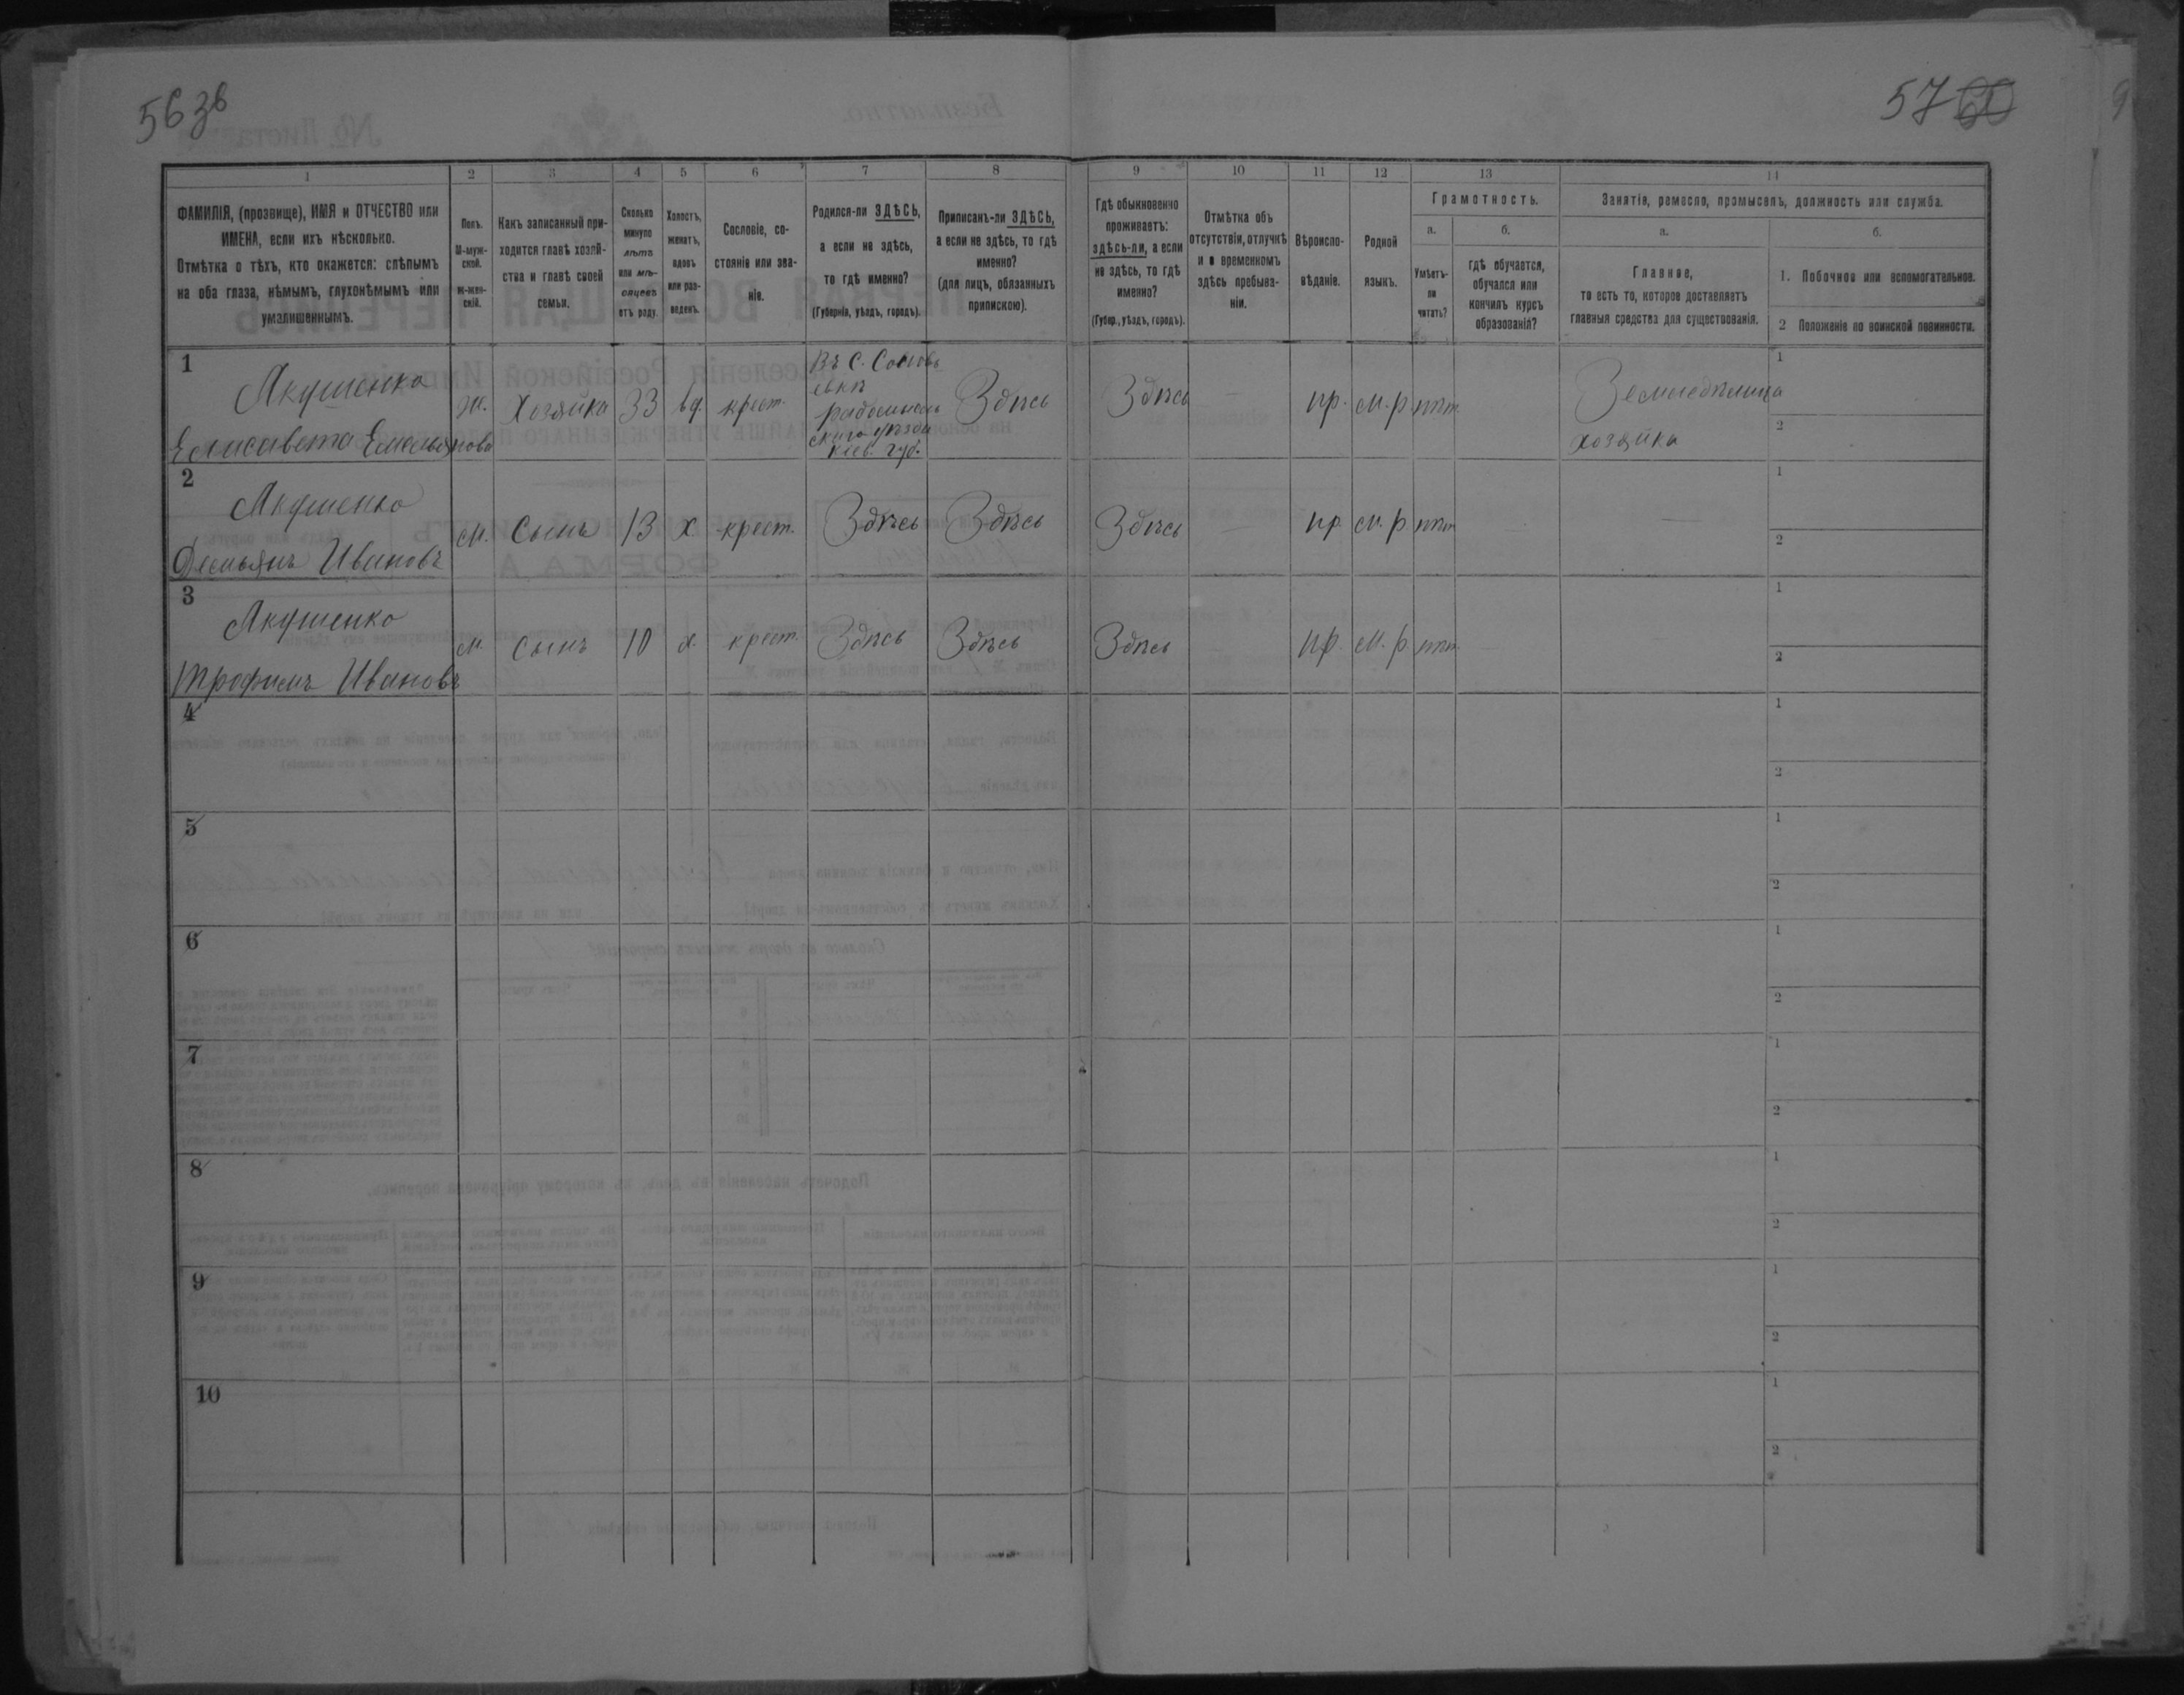 56 зв
57 60
1
2
3
4
5
6
7
8
9
10
11
12
13
14
ФАМИЛІЯ, (прозвище), ИМЯ и ОТЧЕСТВО или
ИМЕНА, если ихъ нѣсколько.
Отмѣтка о тѣхъ, кто окажется: слѣпымъ
на оба глаза, нѣмымъ, глухонѣмымъ или
умалишеннымъ.
Полъ.
М-муж-
ской.
Ж-жен-
скій.
Какъ записанный при-
ходится главѣ хозяй-
ства и главѣ своей
семьи.
Сколько
минуло
лѣтъ
или мѣ-
сяцевъ
отъ роду.
Холостъ,
женатъ,
вдовъ
или раз-
веденъ.
Сословіе, со-
стояніе или зва-
ніе.
Родился-ли ЗДѢСЬ,
а если не здѣсь,
то гдѣ именно?
(Губернія, уѣздъ, городъ).
Приписанъ-ли ЗДѢСЬ,
а если не здѣсь, то гдѣ
именно?
(для лицъ, обязанныхъ
припискою).
Гдѣ обыкновенно
проживаетъ:
здѣсь-ли, а если
не здѣсь, то гдѣ
именно?
(Губер., уѣздъ, городъ).
Отмѣтка объ
отсутствіи, отлучкѣ
и о временномъ
здѣсь пребыва-
ніи.
Вѣроиспо-
вѣданіе.
Родной
языкъ.
Грамотность.
а.
Умѣетъ-
ли
читать?
б.
гдѣ обучается,
обучался или
кончилъ курсъ
образованія?
Занятіе, ремесло, промыселъ, должность или служба.
а.
Главное,
то есть то, которое доставляетъ
главныя средства для существованія.
б.
1. Побочное или вспомогательное.
2 Положеніе по воинской повинности.
1
Якушенко
Елисавета Емельянова
Ж.
Хозяйка
33
вд.
крест.
Въ С. Соловь
евкѣ
радомысль
скаго уѣзда
Кіев. губ.
Здѣсь
Здѣсь
—
пр.
м.р
нѣт
Земледѣлица
хозяйка
1
2
2
Якушенко
Демьянъ Ивановъ
М.
Сынъ
13
х
крест.
Здѣсь
Здѣсь
Здѣсь
—
пр
м.р
нѣт
—
1
2
3
Якушенко
Трофимъ Ивановъ
М.
Сынъ
10
х.
крест.
Здѣсь
Здѣсь
Здѣсь
—
пр.
м.р
нѣт
—
1
2
4
1
2
5
1
2
6
1
2
7
1
2
8
1
2
9
1
2
10
1
2